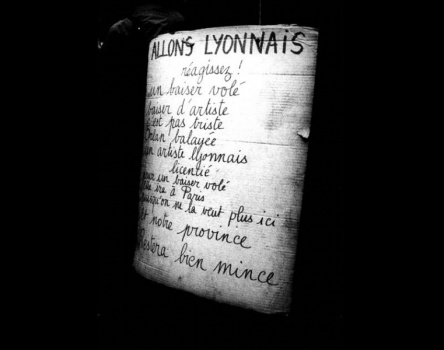 ALLONS LYONNAIS
réagissez !
un baiser volé
baiser d'artiste
c'est pas triste
balayée
un artiste lyonnais
licentié
pour un baiser volé
ira à Paris
puisqu'on ne la veut plus ici
et notre province
Restera bien mince